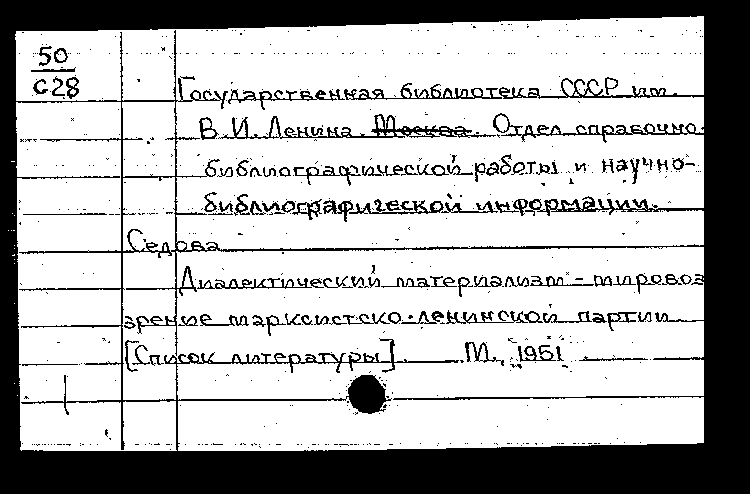 50
С28
Государственная библиотека СССР им.
В.И. Ленина. Москва. Отдел справочно-
библиографической работы и научно-
библиографической информации.
Седова
Диалектический материализм - мировоз
зрение марксистско-ленинской партии
[Список литературы]. М., 1951